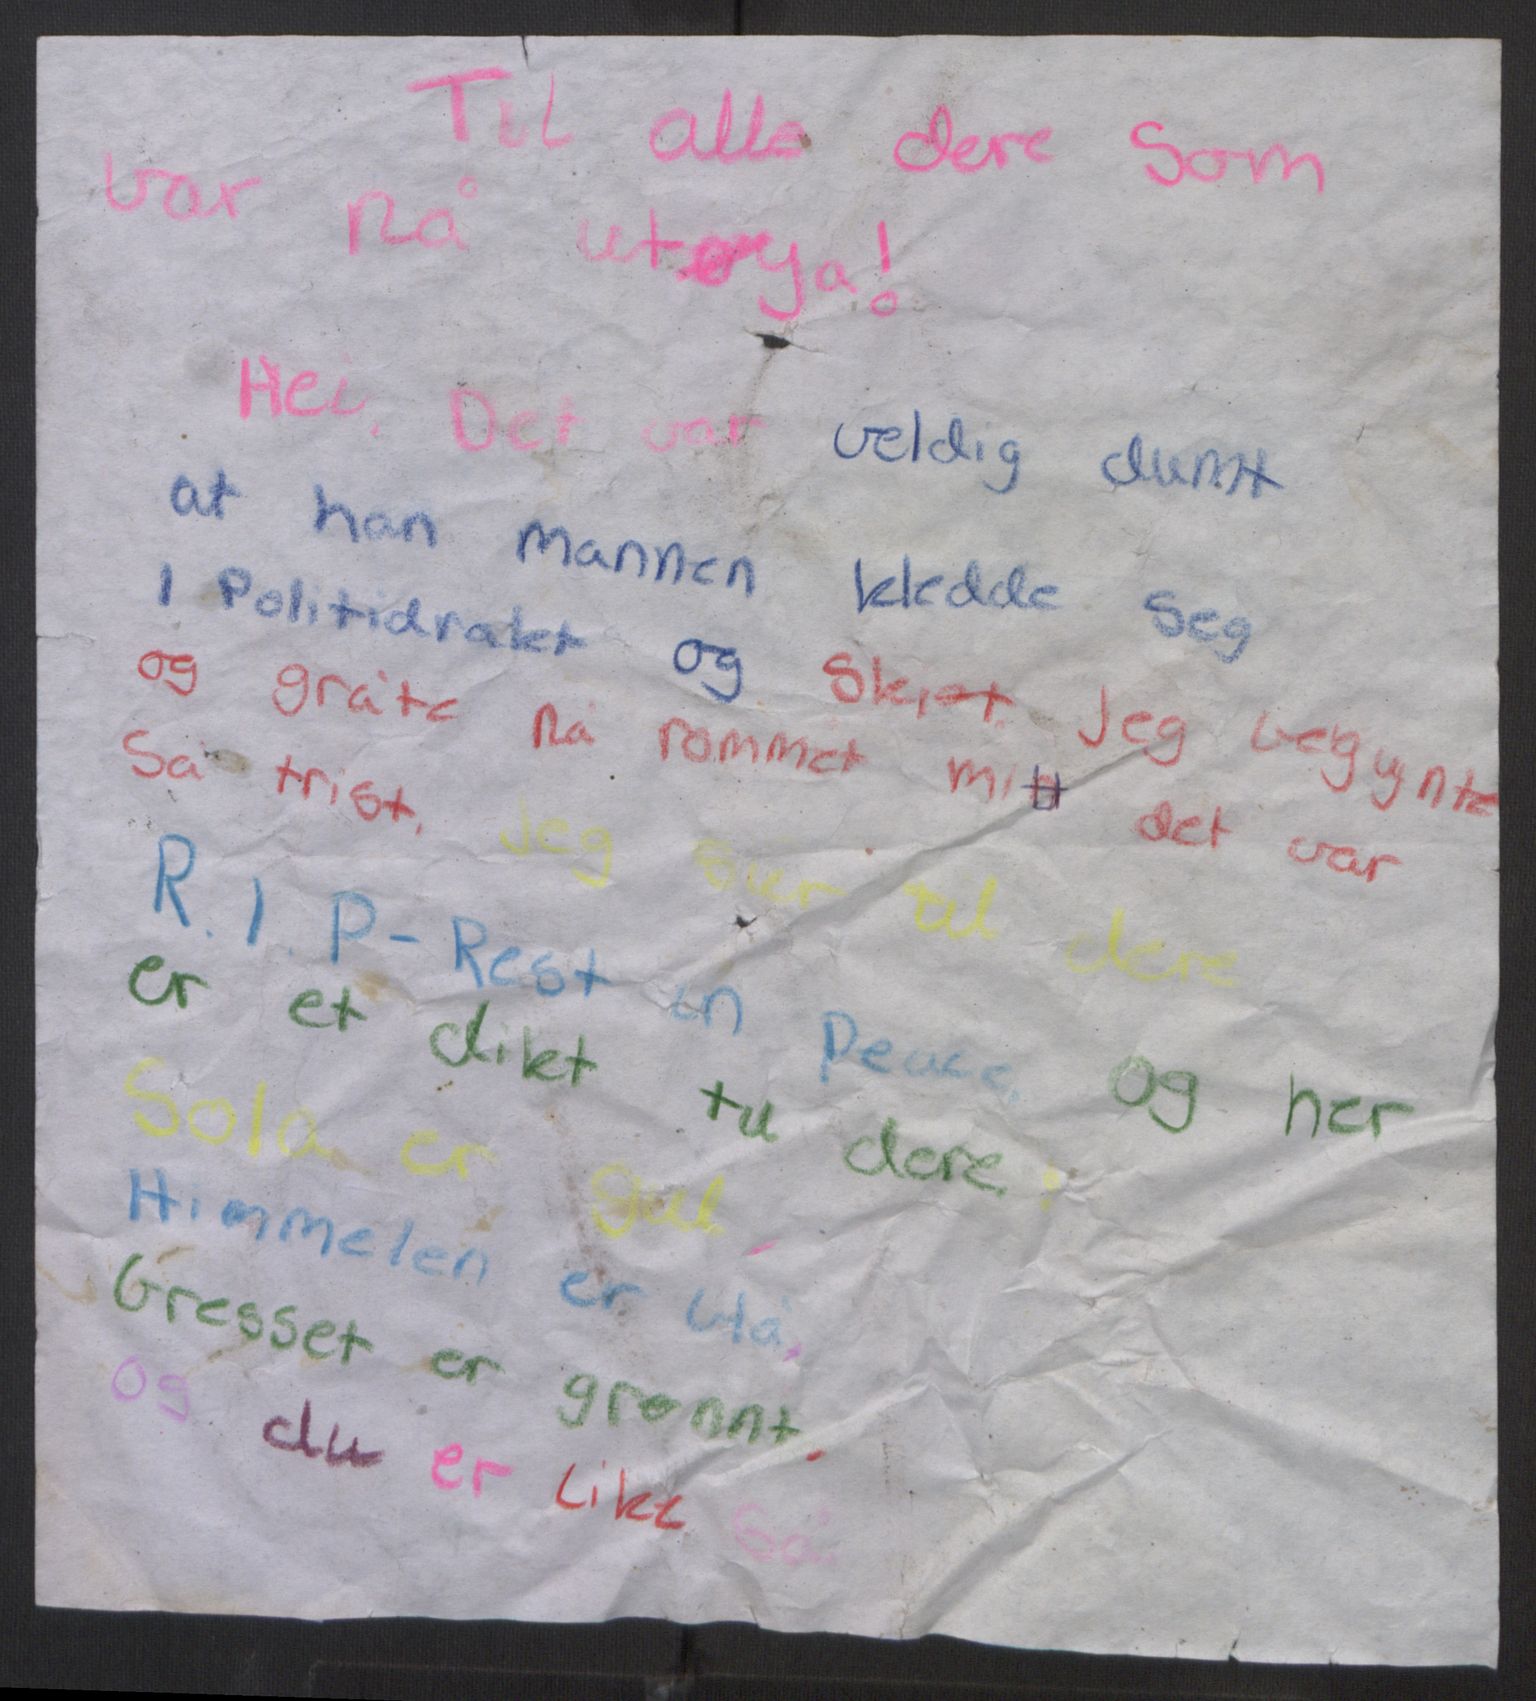 Til alle dere som
var på utøya!
Hei. Det var veldig dumt
at han mannen kledde seg
i Politidrakt og Skjøt. Jeg begynte
og gråte på rommet mitt det var
Så trist. Jeg sier til dere
R.I.P-Rest in Peace. Og her
er et dikt til dere:
Sola er gul
Himmelen er blå,
Gresset er grønnt.
Og du er like Så